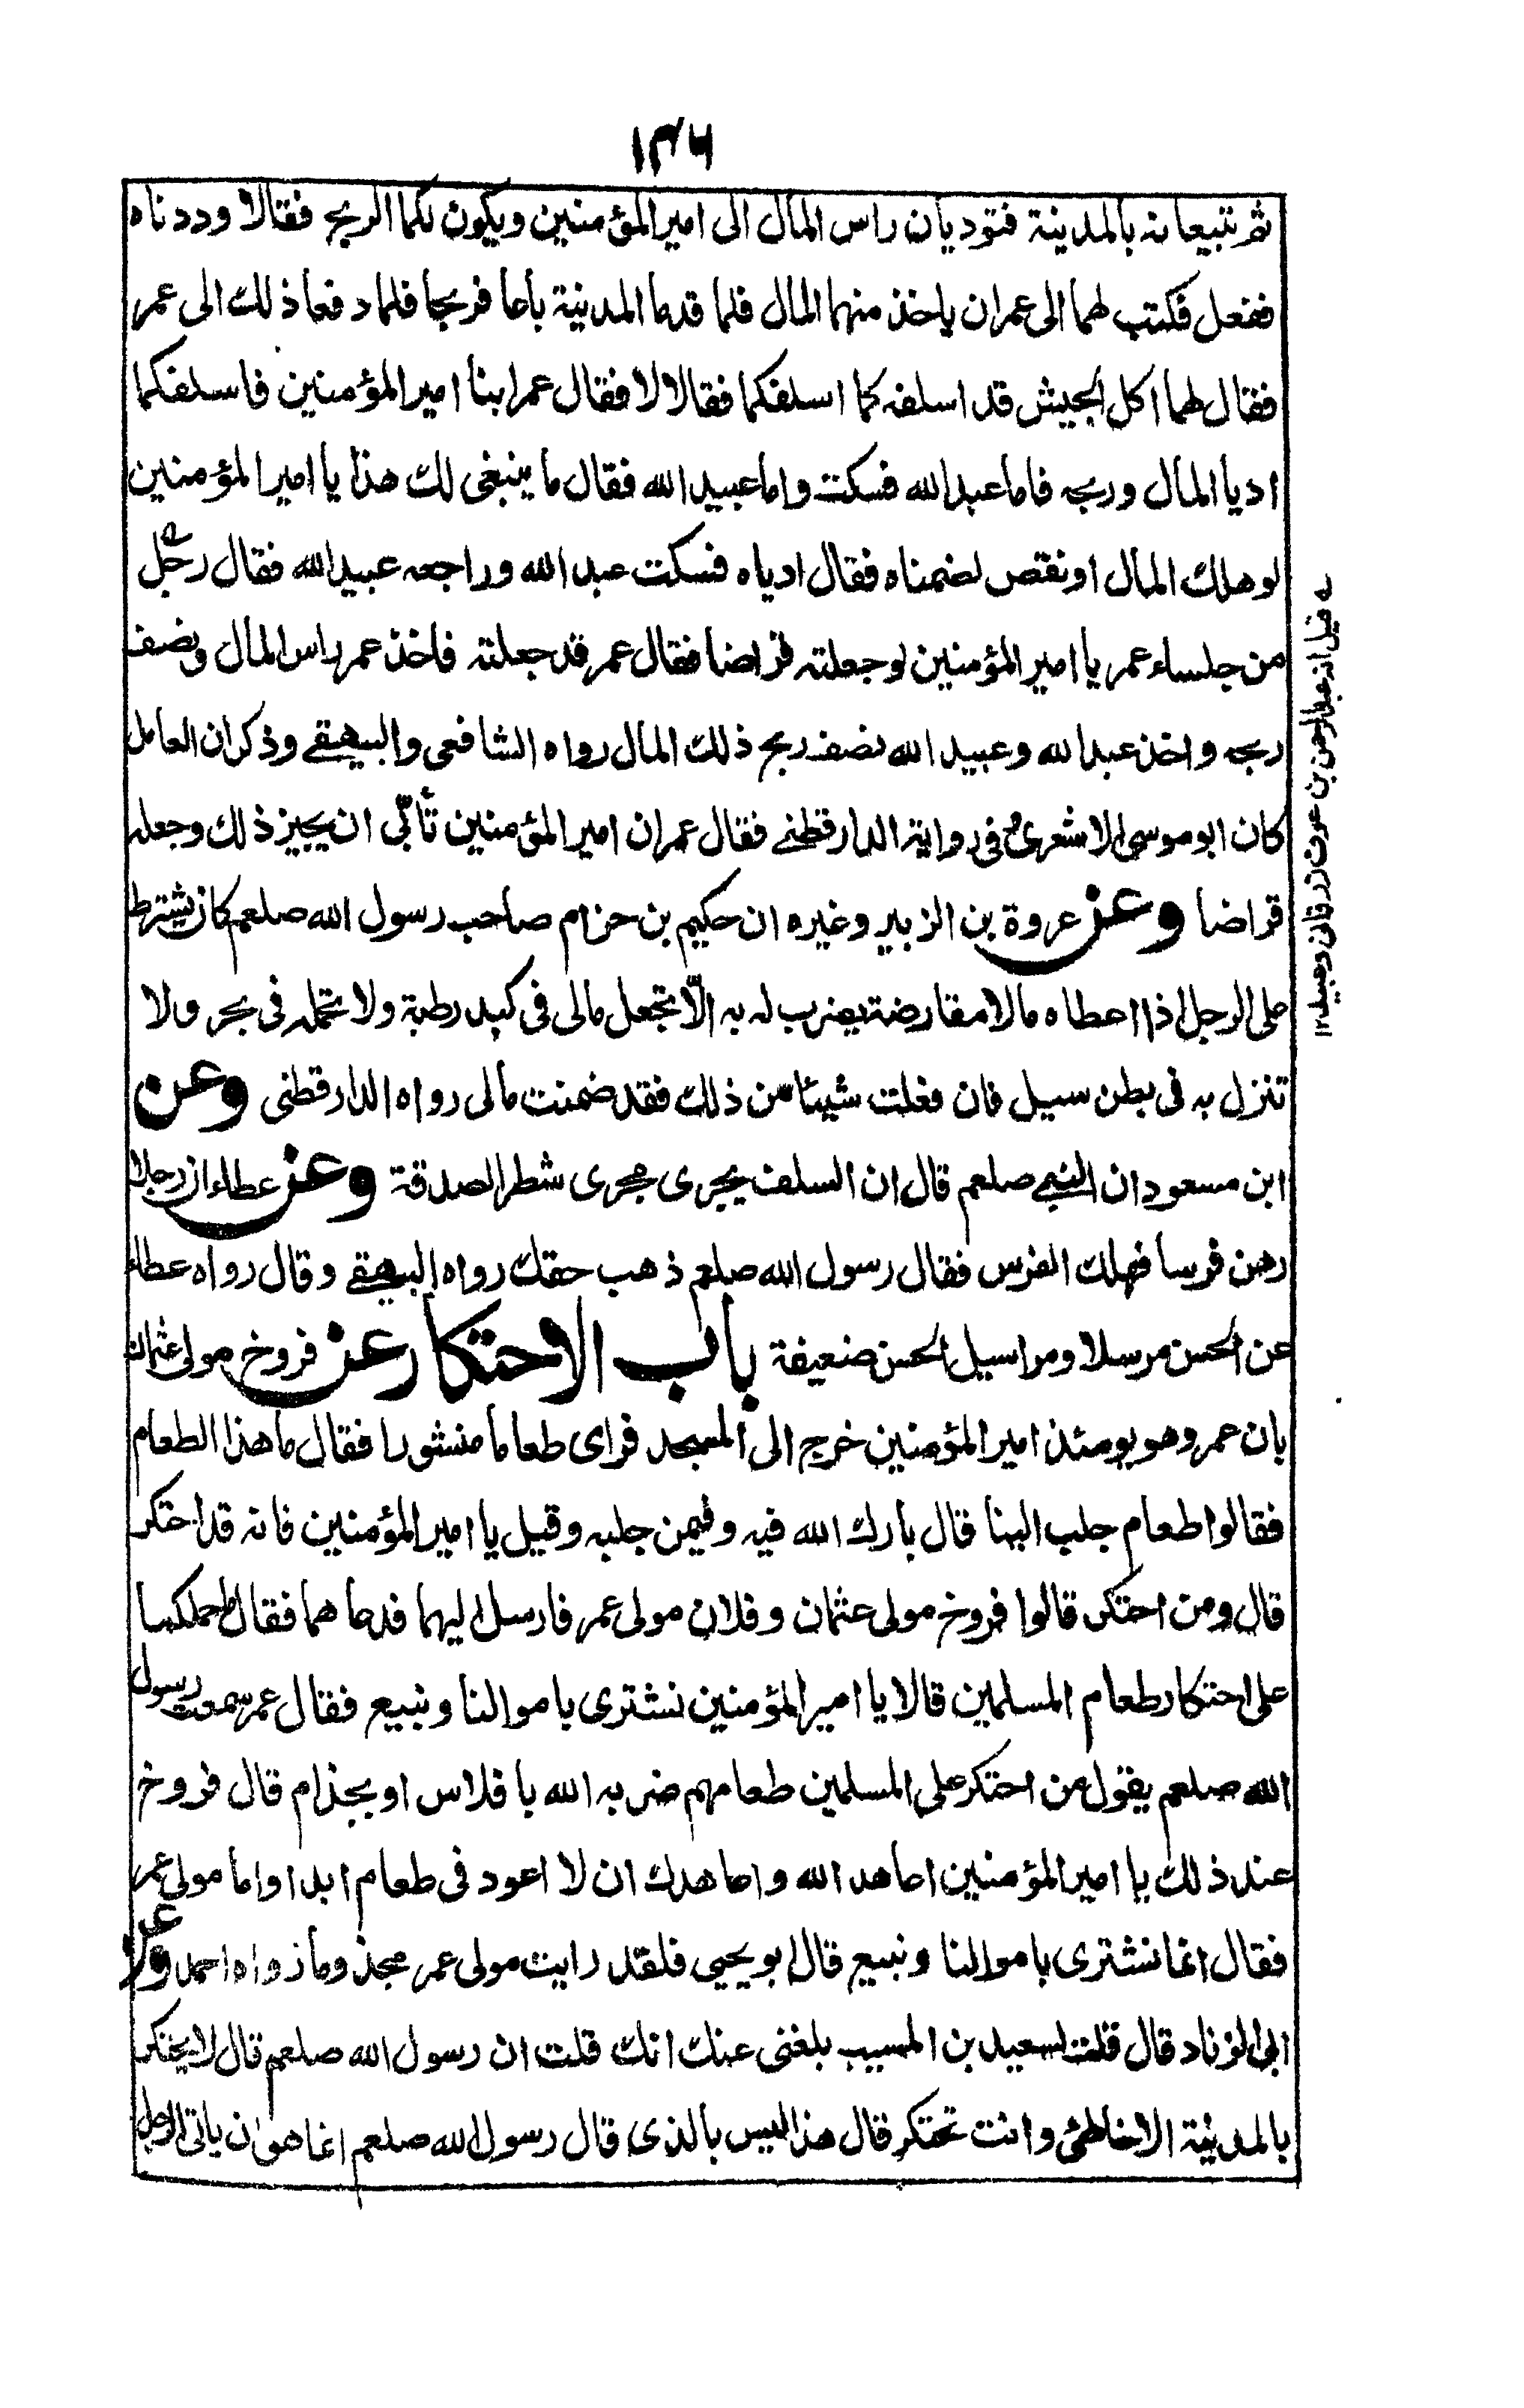 ١٣٦
ثم تبيعانه بالمدينة فتوديان راس المال الى اميرالمؤمنين ويكون لكما الربح فقالا وددناه
ففعل فكتب لهما الى عمر ان ياخذ منهما المال فلما قدما المدينة باعا فربحا فلما دفعا ذلك الى عمر
فقال لهما اكل الجيش قد اسلفه كما اسلفكما فقالا لا فقال عمر ابنا اميرالمؤمنين فاسلفكما
اديا المال وربحه فاما عبدالله فسكت واما عبيدالله فقال ما ينبغى لك هذا يا اميرالمؤمنين
لو هلك المال او نقص لضمناه فقال ادياه فسكت عبدالله وراجعه عبيدالله فقال رجل
من جلساء عمر يا اميرالمؤمنين لو جعلته قراضا فقال عمر قد جعلته فاخذ عمر راس المال ونصف
ربحه واخذ عبدالله وعبيدالله نصف ربح ذلك المال رواه الشافعى والبيهقے وذكر ان العامل
كان ابو موسى الاشعرى وفى رواية الدارقطنے فقال عمر ان اميرالمؤمنين تأبّى ان يجيز ذلك وجعله
قراضا وعن عروة بن الزبير وغيره ان حكيم بن حزام صاحب رسول الله صلعم كان يشترط
على الرجل اذا اعطاه مالا مقارضة يضرب له به الّا تجعل مالى فى كبد رطبة ولا تحمله فى بحر ولا
تنزل به فى بطن سيل فان فعلت شيئا من ذلك فقد ضمنت مالى رواه الدارقطنى وعن
ابن مسعود ان النبے صلعم قال ان السلف يجرى مجرى شطر الصدقة وعن عطاء ان رجلا
رهن فرسا فهلك الفرس فقال رسول الله صلعم ذهب حقك رواه البيهقے وقال رواه عطاء
عن الحسن مرسلا ومراسيل الحسن ضعيفة باب الاحتكار عن فروخ مولى عثمان
بان عمر وهو يومئذ اميرالمؤمنين خرج الى المسجد فراى طعاما منشورا فقال ما هذا الطعام
فقالوا طعام جلب الينا قال بارك الله فيه وفيمن جلبه وقيل يا اميرالمؤمنين فانه قد احتكر
قال ومن احتكر قالوا فروخ مولى عثمان وفلان مولى عمر فارسل اليهما فدعاهما فقال ما حملكما
على احتكار طعام المسلمين قالا يا اميرالمؤمنين نشترى باموالنا ونبيع فقال عمر سمعت رسول
الله صلعم يقول من احتكر على المسلمين طعامهم ضربه الله بافلاس او بجذام قال فروخ
عند ذلك يا اميرالمؤمنين اعاهد الله واعاهدك ان لا اعود فى طعام ابدا واما مولى عمر
فقال انما نشترى باموالنا ونبيع قال ابو يحيى فلقد رايت مولى عمر مجذوما رواه احمد وعن
ابى الزناد قال قلت لسعيد بن المسيب بلغنى عنك انك قلت ان رسول الله صلعم قال لا يحتكر
بالمدينة الا خاطئ وانت تحتكر قال هذا ليس بالذى قال رسول الله صلعم انما هو ان ياتى الرجل
ے قيل انه عبدالرحمن بن عوف زرقانى ١٢